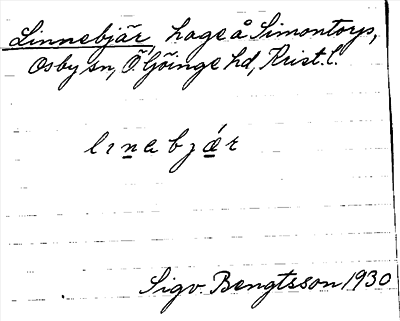 Linnebjär, hage å Simontorps,
Osby sn, Ö. Göinge hd, Krist. l.
lınebjǽr
Sigv. Bengtsson 1930